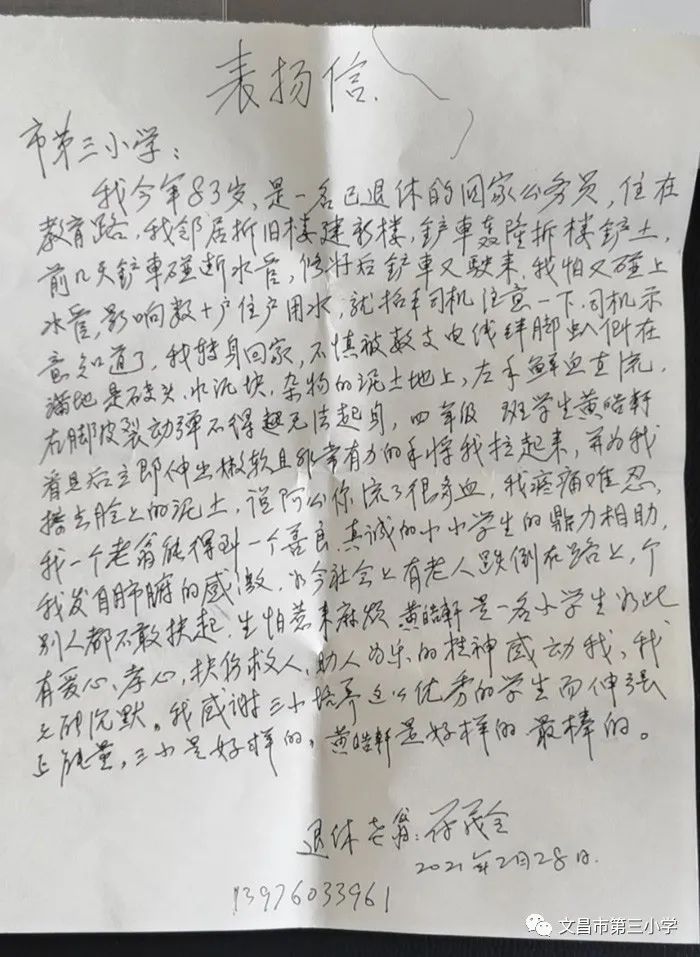 表扬信
市第三小学：
我今年83岁，是一名已退休的囬家公务员，住在
教育路，我邻居拆旧楼建新楼，铲車轰隆拆楼铲土，
前几天铲車碰断水管，修好后铲車又驶来，我怕又碰上
水管，影响数十户住户用水，就招手司机注意一下，司机示
意知道了，我转身回家，不慎被数支电线绊脚趴倒在
满地是砖头、水泥块、杂物的泥土地上，左手鲜血直流，
左脚皮裂动弹不得无法起身，四年级 班学生黄皓軒
看見后立即伸出嫩软且非常有力的手将我拉起来，并为我
擦去脸上的泥土，说阿公你流了很多血，我疼痛难忍，
我一个老翁能得到一个善良、真诚的小小学生的鼎力相助，
我发自肺腑的感激，如今社会上有老人跌倒在路上，个
别人都不敢扶起，生怕惹来麻烦，黄皓軒是一名小学生如此
有爱心、孝心，扶伤救人，助人为乐的精神感动我，我
无法沉默。我感谢三小培养这么优秀的学生而伸张
上能量，三小是好样的，黄皓軒是好样的最棒的。
退休老翁：符
2021年2月28日.
13976033961
文昌市第三小学